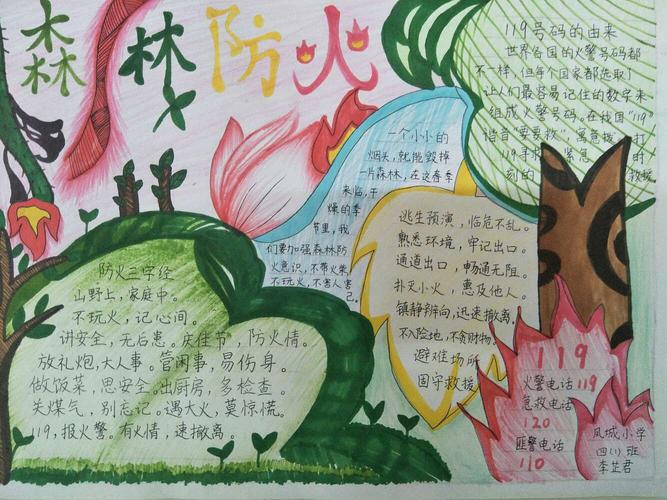 森林防火
119号码的由来
世界各国的火警号码都
不一样,但每个国家都选取了
让人们最容易记住的数字来
组成火警号码。在我国"119"
谐音"要要救",寓意拨打
119寻求紧急时
刻的救援
一个小小的
烟头,就能毁掉
一片森林,在这春季
来临,干
燥的季
节里,我
们要加强森林防
火意识,不带火柴
不玩火,不害人害
己。
逃生预演,临危不乱。
熟悉环境,牢记出口。
通道出口,畅通无阻。
扑灭小火,惠及他人。
镇静辨向,迅速撤离。
不入险地,不贪财物。
避难场所
固守救援
防火三字经
山野上,家庭中。
不玩火,记心间。
讲安全,无后患。庆佳节,防火情。
放礼炮,大人事。管闲事,易伤身。
做饭菜,思安全。出厨房,多检查。
关煤气,别忘记。遇大火,莫惊慌。
119,报火警。有火情,速撤离。
119
火警电话119
急救电话
120
匪警电话
110
凤城小学
四(1)班
李芷君